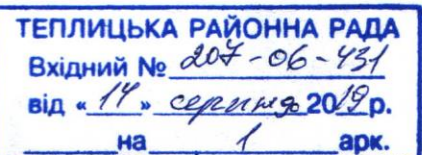 ТЕПЛИЦЬКА РАЙОННА РАДА
Вхідний № 207-06-431
від «14» серпня 2019 р.
на 1 арк.